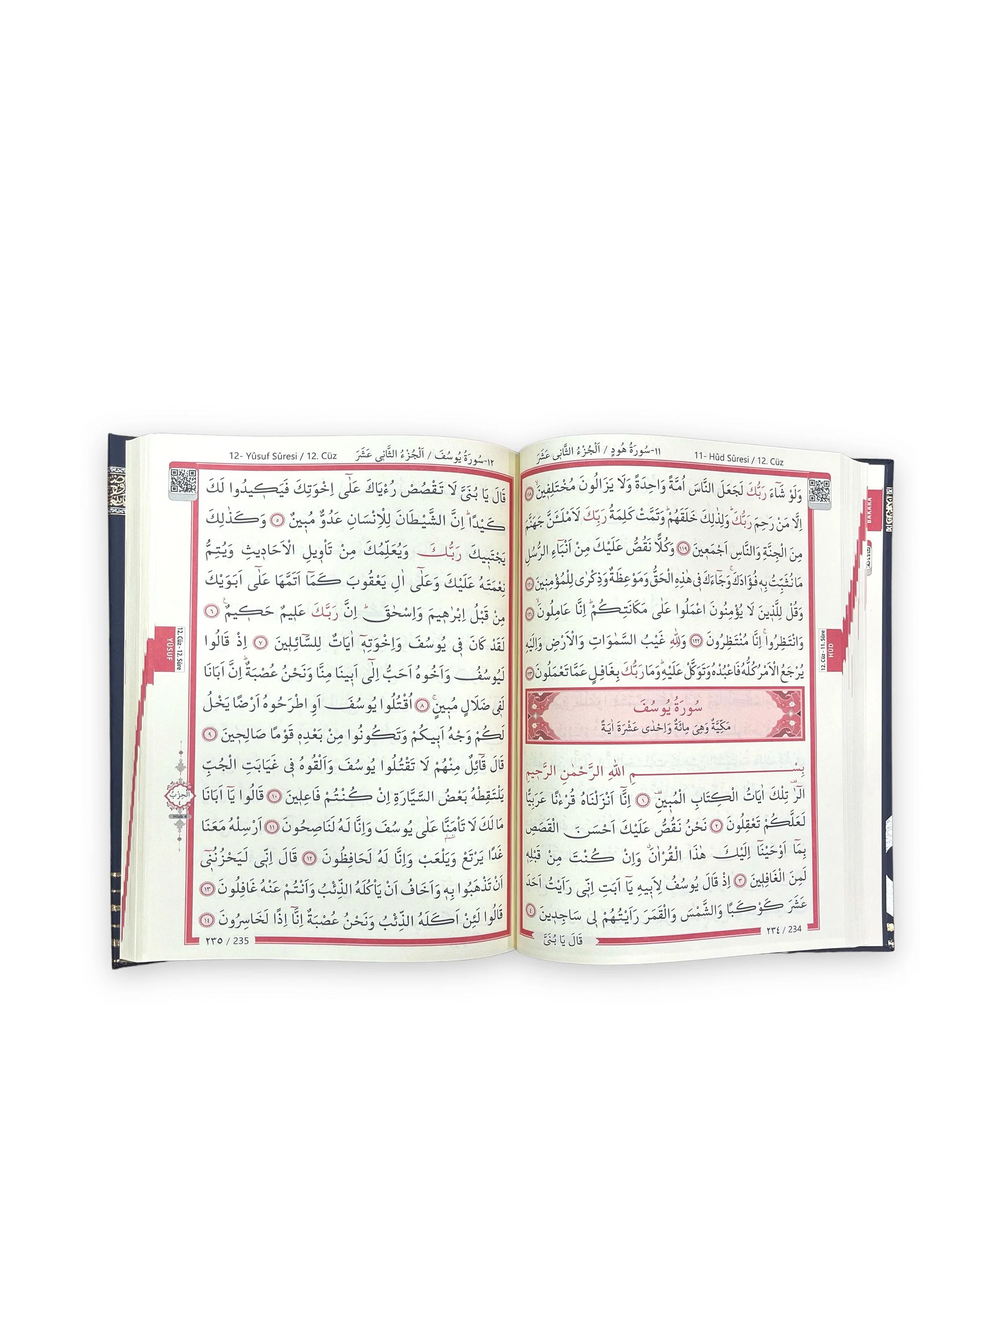 ١١-سُورَةُ هُودٍ / اَلْجُزْءُ الثَّانِى عَشَرَ
11- Hûd Sûresi / 12. Cüz
وَلَوْ شَٓاءَ رَبُّكَ لَجَعَلَ النَّاسَ اُمَّةً وَاحِدَةً وَلَا يَزَالُونَ مُخْتَلِفٖينَۙ ﴿١١٨﴾
اِلَّا مَنْ رَحِمَ رَبُّكَۜ وَلِذٰلِكَ خَلَقَهُمْۜ وَتَمَّتْ كَلِمَةُ رَبِّكَ لَاَمْلَـَٔنَّ جَهَنَّمَ
مِنَ الْجِنَّةِ وَالنَّاسِ اَجْمَعٖينَ ﴿١١٩﴾ وَكُلًّا نَقُصُّ عَلَيْكَ مِنْ اَنْبَٓاءِ الرُّسُلِ
مَا نُثَبِّتُ بِهٖ فُؤٰادَكَۚ وَجَٓاءَكَ فٖى هٰذِهِ الْحَقُّ وَمَوْعِظَةٌ وَذِكْرٰى لِلْمُؤْمِنٖينَ ﴿١٢٠﴾
وَقُلْ لِلَّذٖينَ لَا يُؤْمِنُونَ اعْمَلُوا عَلٰى مَكَانَتِكُمْۜ اِنَّا عَامِلُونَۙ ﴿١٢١﴾
وَانْتَظِرُواۚ اِنَّا مُنْتَظِرُونَ ﴿١٢٢﴾ وَلِلّٰهِ غَيْبُ السَّمٰوَاتِ وَالْاَرْضِ وَاِلَيْهِ
يُرْجَعُ الْاَمْرُ كُلُّهُ فَاعْبُدْهُ وَتَوَكَّلْ عَلَيْهِۜ وَمَا رَبُّكَ بِغَافِلٍ عَمَّا تَعْمَلُونَ ﴿١٢٣﴾
سُورَةُ يُوسُفَ
مَكِّيَّةٌ وَهِىَ مِائَةٌ وَاِحْدٰى عَشْرَةَ اٰيَةً
بِسْمِ اللّٰهِ الرَّحْمٰنِ الرَّحٖيمِ
الٓرٰ۠ تِلْكَ اٰيَاتُ الْكِتَابِ الْمُبٖينِ۠ ﴿١﴾ اِنَّٓا اَنْزَلْنَاهُ قُرْءٰنًا عَرَبِيًّا
لَعَلَّكُمْ تَعْقِلُونَ ﴿٢﴾ نَحْنُ نَقُصُّ عَلَيْكَ اَحْسَنَ الْقَصَصِ
بِمَٓا اَوْحَيْنَٓا اِلَيْكَ هٰذَا الْقُرْاٰنَۗ وَاِنْ كُنْتَ مِنْ قَبْلِهٖ
لَمِنَ الْغَافِلٖينَ ﴿٣﴾ اِذْ قَالَ يُوسُفُ لِاَبٖيهِ يَٓا اَبَتِ اِنّٖى رَاَيْتُ اَحَدَ
عَشَرَ كَوْكَبًا وَالشَّمْسَ وَالْقَمَرَ رَاَيْتُهُمْ لٖى سَاجِدٖينَ ﴿٤﴾
قَالَ يَا بُنَىَّ
٢٣٤ / 234
BAKARA
HÛD
12. Cüz - 11. Sûre
١٢-سُورَةُ يُوسُفَ / اَلْجُزْءُ الثَّانِى عَشَرَ
12- Yûsuf Sûresi / 12. Cüz
قَالَ يَا بُنَىَّ لَا تَقْصُصْ رُءْيَاكَ عَلٰٓى اِخْوَتِكَ فَيَكٖيدُوا لَكَ
كَيْدًاۜ اِنَّ الشَّيْطَانَ لِلْاِنْسَانِ عَدُوٌّ مُبٖينٌ ﴿٥﴾ وَكَذٰلِكَ
يَجْتَبٖيكَ رَبُّكَ وَيُعَلِّمُكَ مِنْ تَاْوٖيلِ الْاَحَادٖيثِ وَيُتِمُّ
نِعْمَتَهُ عَلَيْكَ وَعَلٰٓى اٰلِ يَعْقُوبَ كَمَٓا اَتَمَّهَا عَلٰٓى اَبَوَيْكَ
مِنْ قَبْلُ اِبْرٰهٖيمَ وَاِسْحٰقَۜ اِنَّ رَبَّكَ عَلٖيمٌ حَكٖيمٌ۟ ﴿٦﴾
لَقَدْ كَانَ فٖى يُوسُفَ وَاِخْوَتِهٖٓ اٰيَاتٌ لِلسَّٓائِلٖينَ ﴿٧﴾ اِذْ قَالُوا
لَيُوسُفُ وَاَخُوهُ اَحَبُّ اِلٰٓى اَبٖينَا مِنَّا وَنَحْنُ عُصْبَةٌۜ اِنَّ اَبَانَا
لَفٖى ضَلَالٍ مُبٖينٍۚ ﴿٨﴾ اُقْتُلُوا يُوسُفَ اَوِ اطْرَحُوهُ اَرْضًا يَخْلُ
لَكُمْ وَجْهُ اَبٖيكُمْ وَتَكُونُوا مِنْ بَعْدِهٖ قَوْمًا صَالِحٖينَ ﴿٩﴾
قَالَ قَٓائِلٌ مِنْهُمْ لَا تَقْتُلُوا يُوسُفَ وَاَلْقُوهُ فٖى غَيَابَتِ الْجُبِّ
يَلْتَقِطْهُ بَعْضُ السَّيَّارَةِ اِنْ كُنْتُمْ فَاعِلٖينَ ﴿١٠﴾ قَالُوا يَٓا اَبَانَا
مَا لَكَ لَا تَاْمَنَّا عَلٰى يُوسُفَ وَاِنَّا لَهُ لَنَاصِحُونَ ﴿١١﴾ اَرْسِلْهُ مَعَنَا
غَدًا يَرْتَعْ وَيَلْعَبْ وَاِنَّا لَهُ لَحَافِظُونَ ﴿١٢﴾ قَالَ اِنّٖى لَيَحْزُنُنٖٓى
اَنْ تَذْهَبُوا بِهٖ وَاَخَافُ اَنْ يَاْكُلَهُ الذِّئْبُ وَاَنْتُمْ عَنْهُ غَافِلُونَ ﴿١٣﴾
قَالُوا لَئِنْ اَكَلَهُ الذِّئْبُ وَنَحْنُ عُصْبَةٌ اِنَّٓا اِذًا لَخَاسِرُونَ ﴿١٤﴾
٢٣٥ / 235
12. Cüz - 12. Sûre
YUSUF
اَلْحِزْبُ